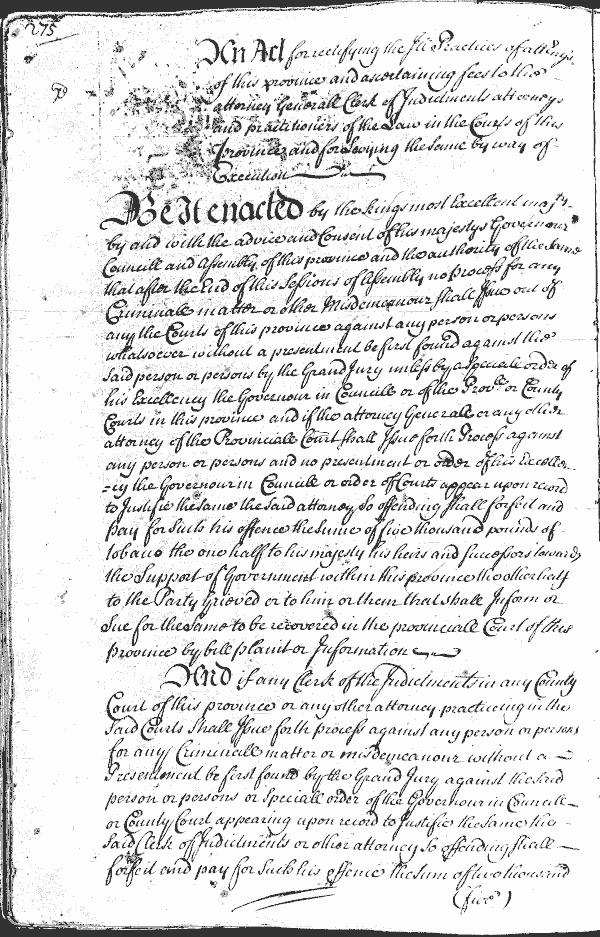 275
An Act for rectifying the Ill Practices of attorneys
of this province and ascertaining fees to the
attorney Generall Clerk of Indictments attorneys
and practitioners of the Law in the Courts of this
Province and for Levying the same by way of
Execution
Be It enacted by the kings most Excellent majty
by and with the advice and Consent of his majestys Governour
Councill and Assembly of this province and the authority of the same
that after the End of this Sessions of Assembly no Process for any
Criminale matter or other Misdemeanour shall Issue out of
any the Courts of this province against any person or persons
whatsoever without a presentment be first found against the
said person or persons by the Grand Jury unless by a speciale order of
his Excellency the Governour in Councile or of the Provll or County
Courts in this province and if the attorney Generale or any other
attorney of the Provinciale Court shall Issue forth Process against
any person or persons and no presentment or order of his Excellen-
=cy the Governour in Councile or order of Courts appear upon record
to Justifie the same the said attorney So offending shall forfeit and
pay for Such his offence the Sume of five thousand pounds of
tobacco the one half to his majesty his heirs and Successors towards
the Support of Government within this province the other half
to the Party Grieved or to him or them that shall Inform or
Sue for the Same to be recovered in the provinciall Court of this
Province by bill plaint or Information
And if any Clerk of the Indictments in any County
Court of this province or any other attorney practicing in the
Said Courts shall Issue forth process against any person or persons
for any Criminale matter or misdemeanour without a
Presentment be first found by the Grand Jury against the said
person or persons or Speciall order of the Governour in Councill
or County Court appearing upon record to Justifie the same the
Said Clerk of Indictments or other attorney So offending shall
forfeit and pay for Such his offence the Sum of two thousand
(five)